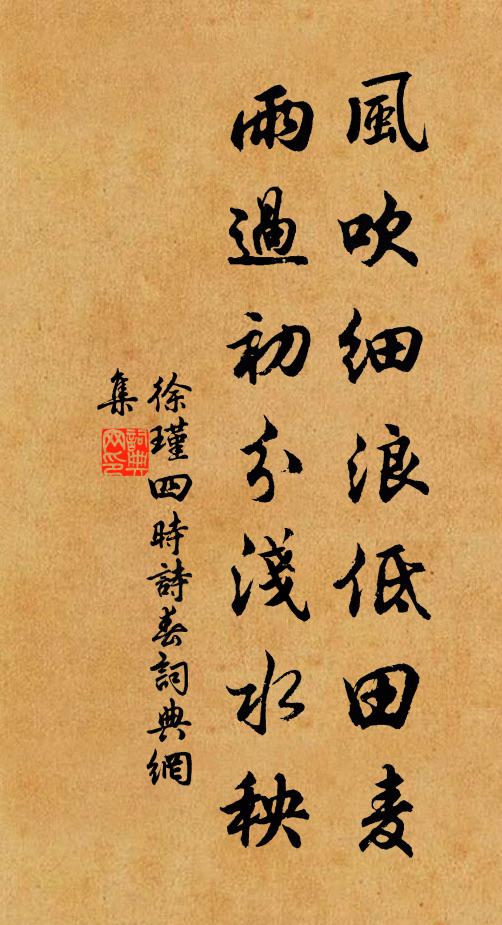 風吹細浪低田麦
雨過初分淺水秧
徐瑾四時詩春詞典網
集
詞典網印